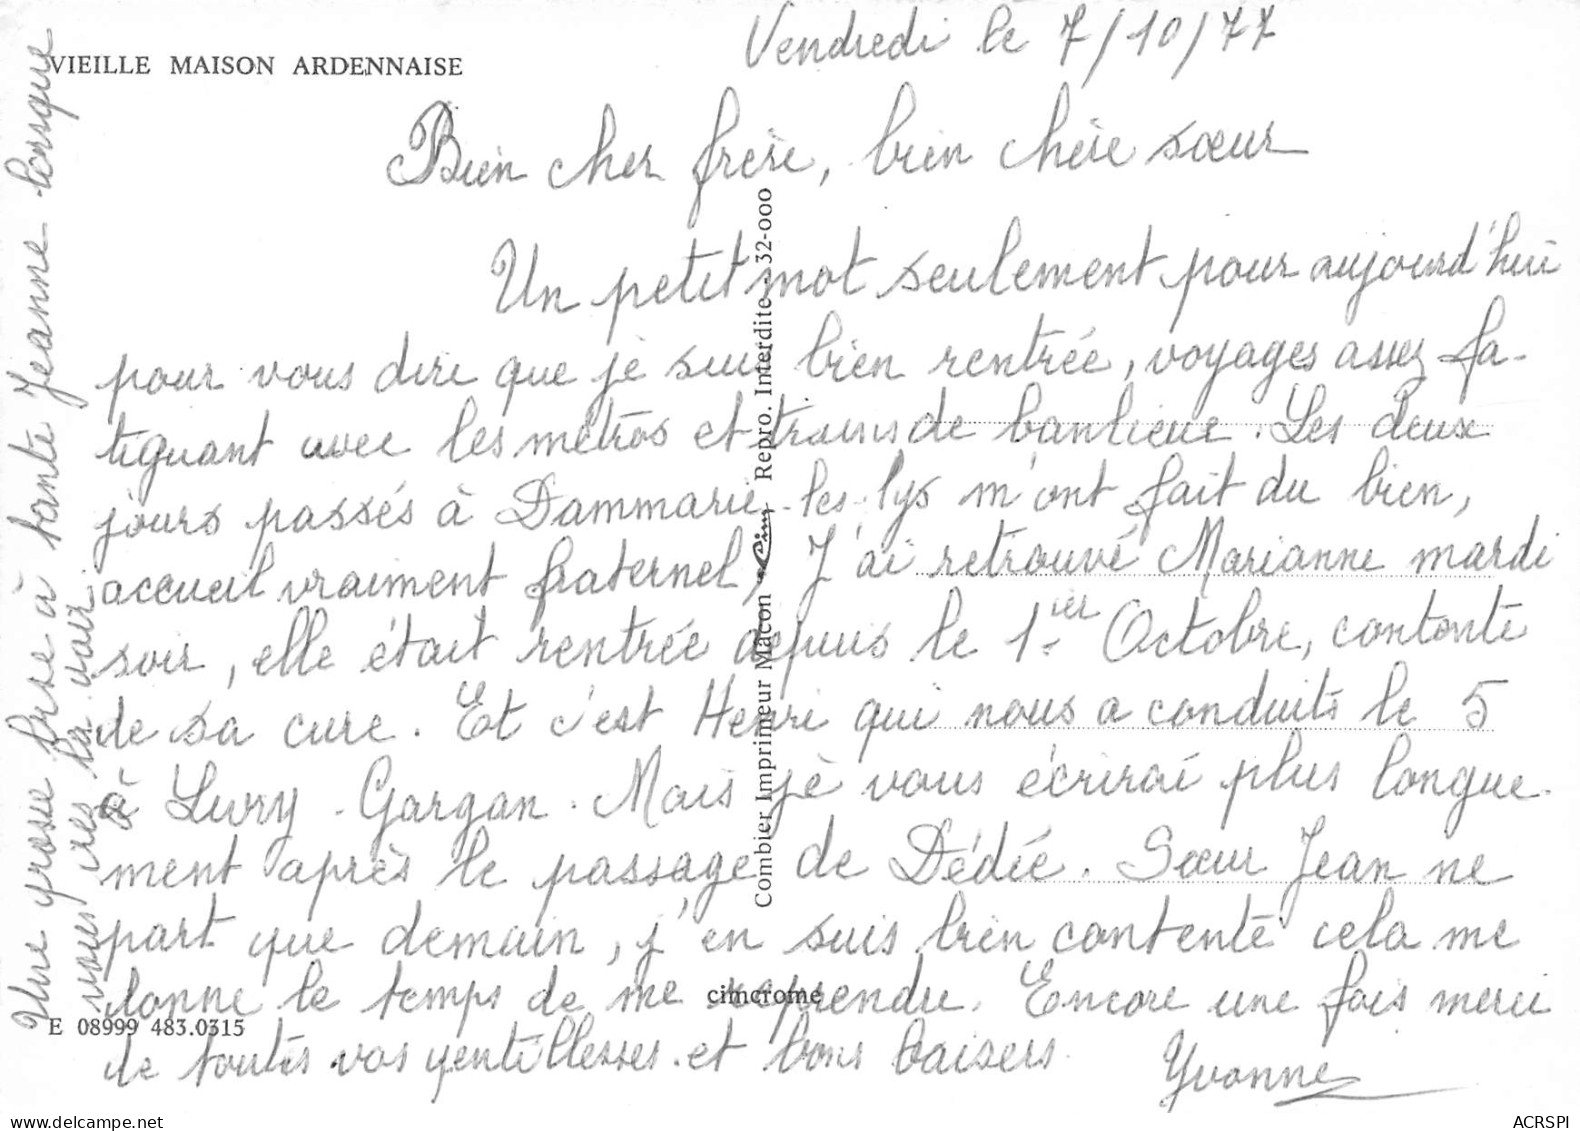 Vendredi le 7/10/77
VIEILLE MAISON ARDENNAISE
Bien cher frère, bien chère sœur
Un petit mot seulement pour aujourd'hui
pour vous dire que je suis bien rentrée, voyages assez fa-
tiguant avec les métros et trains de banlieue. Les deux
jours passés à Dammarie-les-lys m'ont fait du bien,
accueil vraiment fraternel, J'ai retrouvé Marianne mardi
soir, elle était rentrée depuis le 1er Octobre, contente
de sa cure. Et c'est Henri qui nous a conduits le 5
à Livry-Gargan. Mais je vous écrirai plus longue-
ment après le passage de Dédée. Sœur Jean ne
part que demain, j'en suis bien contente cela me
donne le temps de me reprendre. Encore une fois merci
de toutes vos gentillesses et bons baisers
Yvonne
Une grosse bise à tante Jeanne lorsque
vous irez la voir.
Combier Imprimeur Mâcon Cim Repro. Interdite - 32-000
cimcrome
E 08999 483.0315
ACRSPI